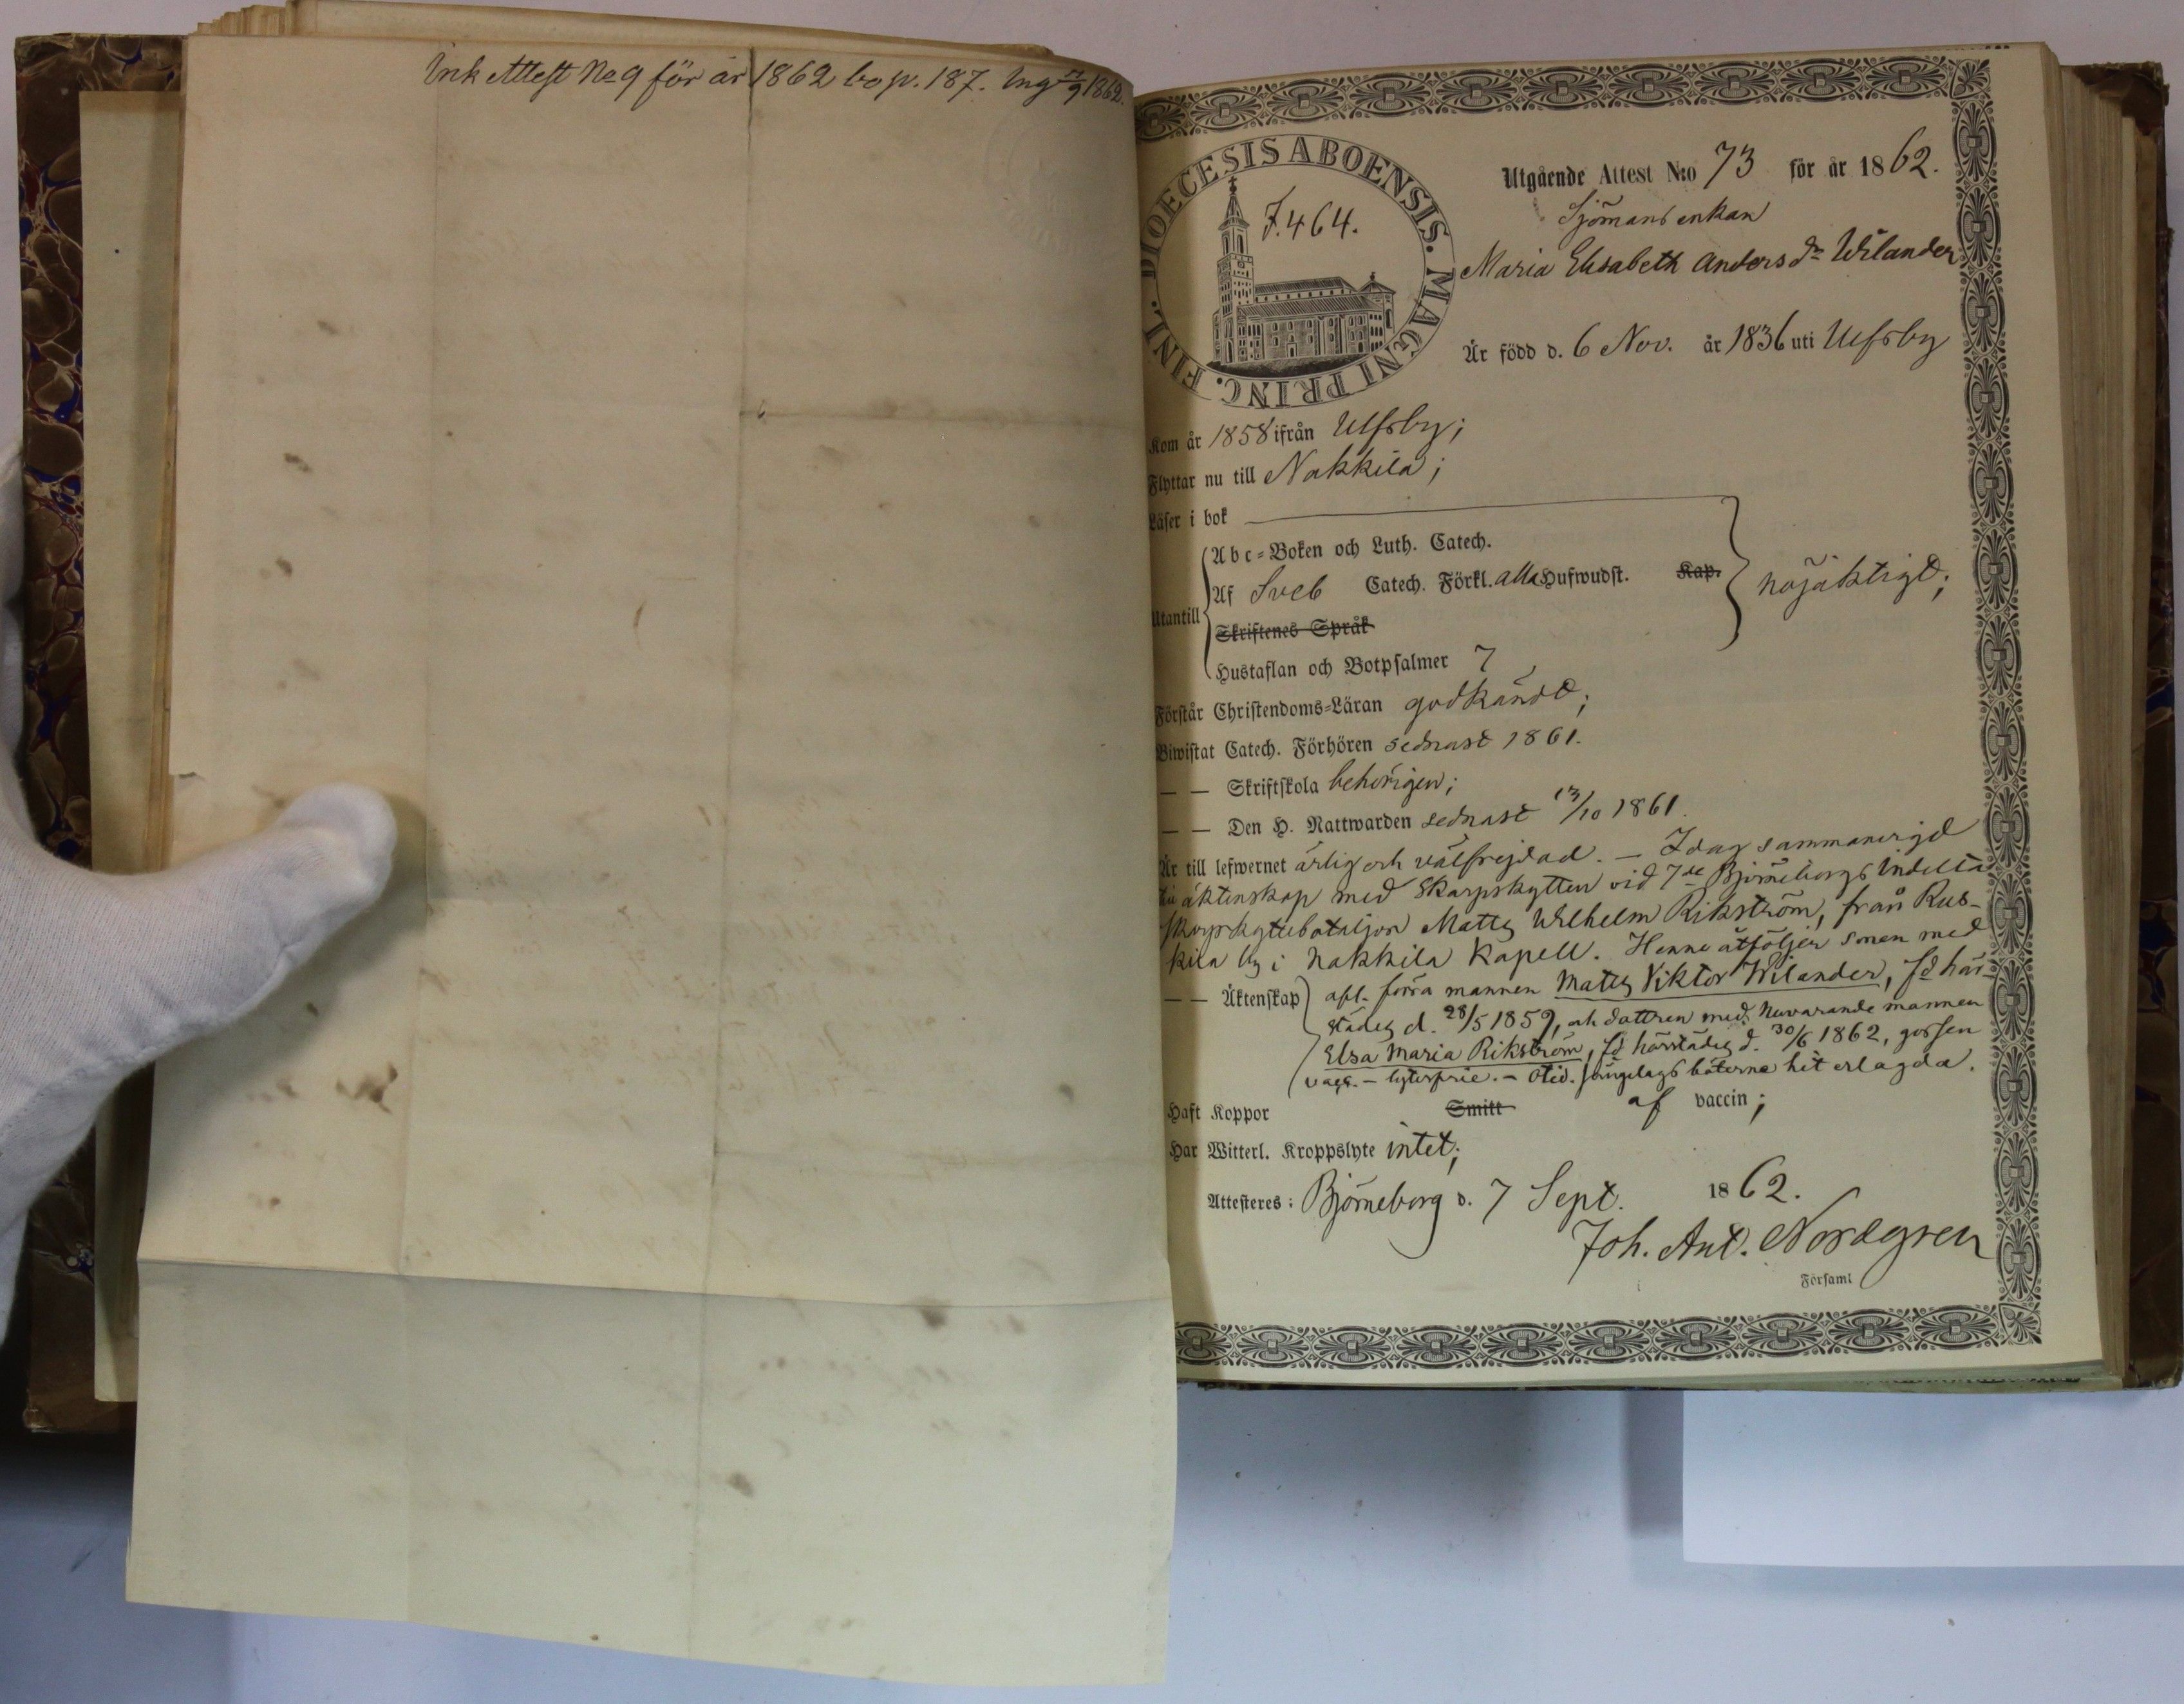 Ink Attest No 9 för år 1862 bo p. 187. Ing 9 1862.
FINL. DIOECESIS ABOENSIS. MAGNI PRINC.
F. 464.
Utgående Attest N:o 73 för år 1862.
Sjömans enkan
Maria Elisabeth Anders dr Wilander
Är född d. 6 Nov. år 1836 uti Ulfsby
Kom år 1858 ifrån Ulfsby;
Flyttar nu till Nakkila;
Läser i bok
Abc-Boken och Luth. Catech.
Af Sveb Catech. Förkl. alla Hufwudst. Kap.
nöjaktigt;
Utantill
Skriftenes Språk
Hustaflan och Botpsalmer 7
Förstår Christendoms-Läran godkändt;
Biwistat Catech. Förhören sednast 1861.
— — Skriftskola behörigen;
— — Den H. Nattwarden sednast 13/10 1861.
Är till lefwernet ärlig och välfrejdad. — Idag sammanvigd
till äktenskap med Skarpskytten vid 7de Björneborgs Indelta
skarpskyttebataljon Matts Wilhelm Rikström, från Rus-
kila by i Nakkila Kapell. Henne åtföljer sonen med
— — Äktenskap afl. förra mannen Matts Viktor Wilander, fd här-
städes d. 28/5 1859, och dottren med nuvarande mannen
Elsa Maria Rikström, fd härstädes d. 30/6 1862, gossen
vacc. — lyterfrie. — Otid. sängelags böterne hit erlagda.
Haft Koppor Smitt af vaccin;
Har Witterl. Kroppslyte intet;
Attesteres: Björneborg d. 7 Sept. 1862.
Joh. Ant. Nordgren
Församl